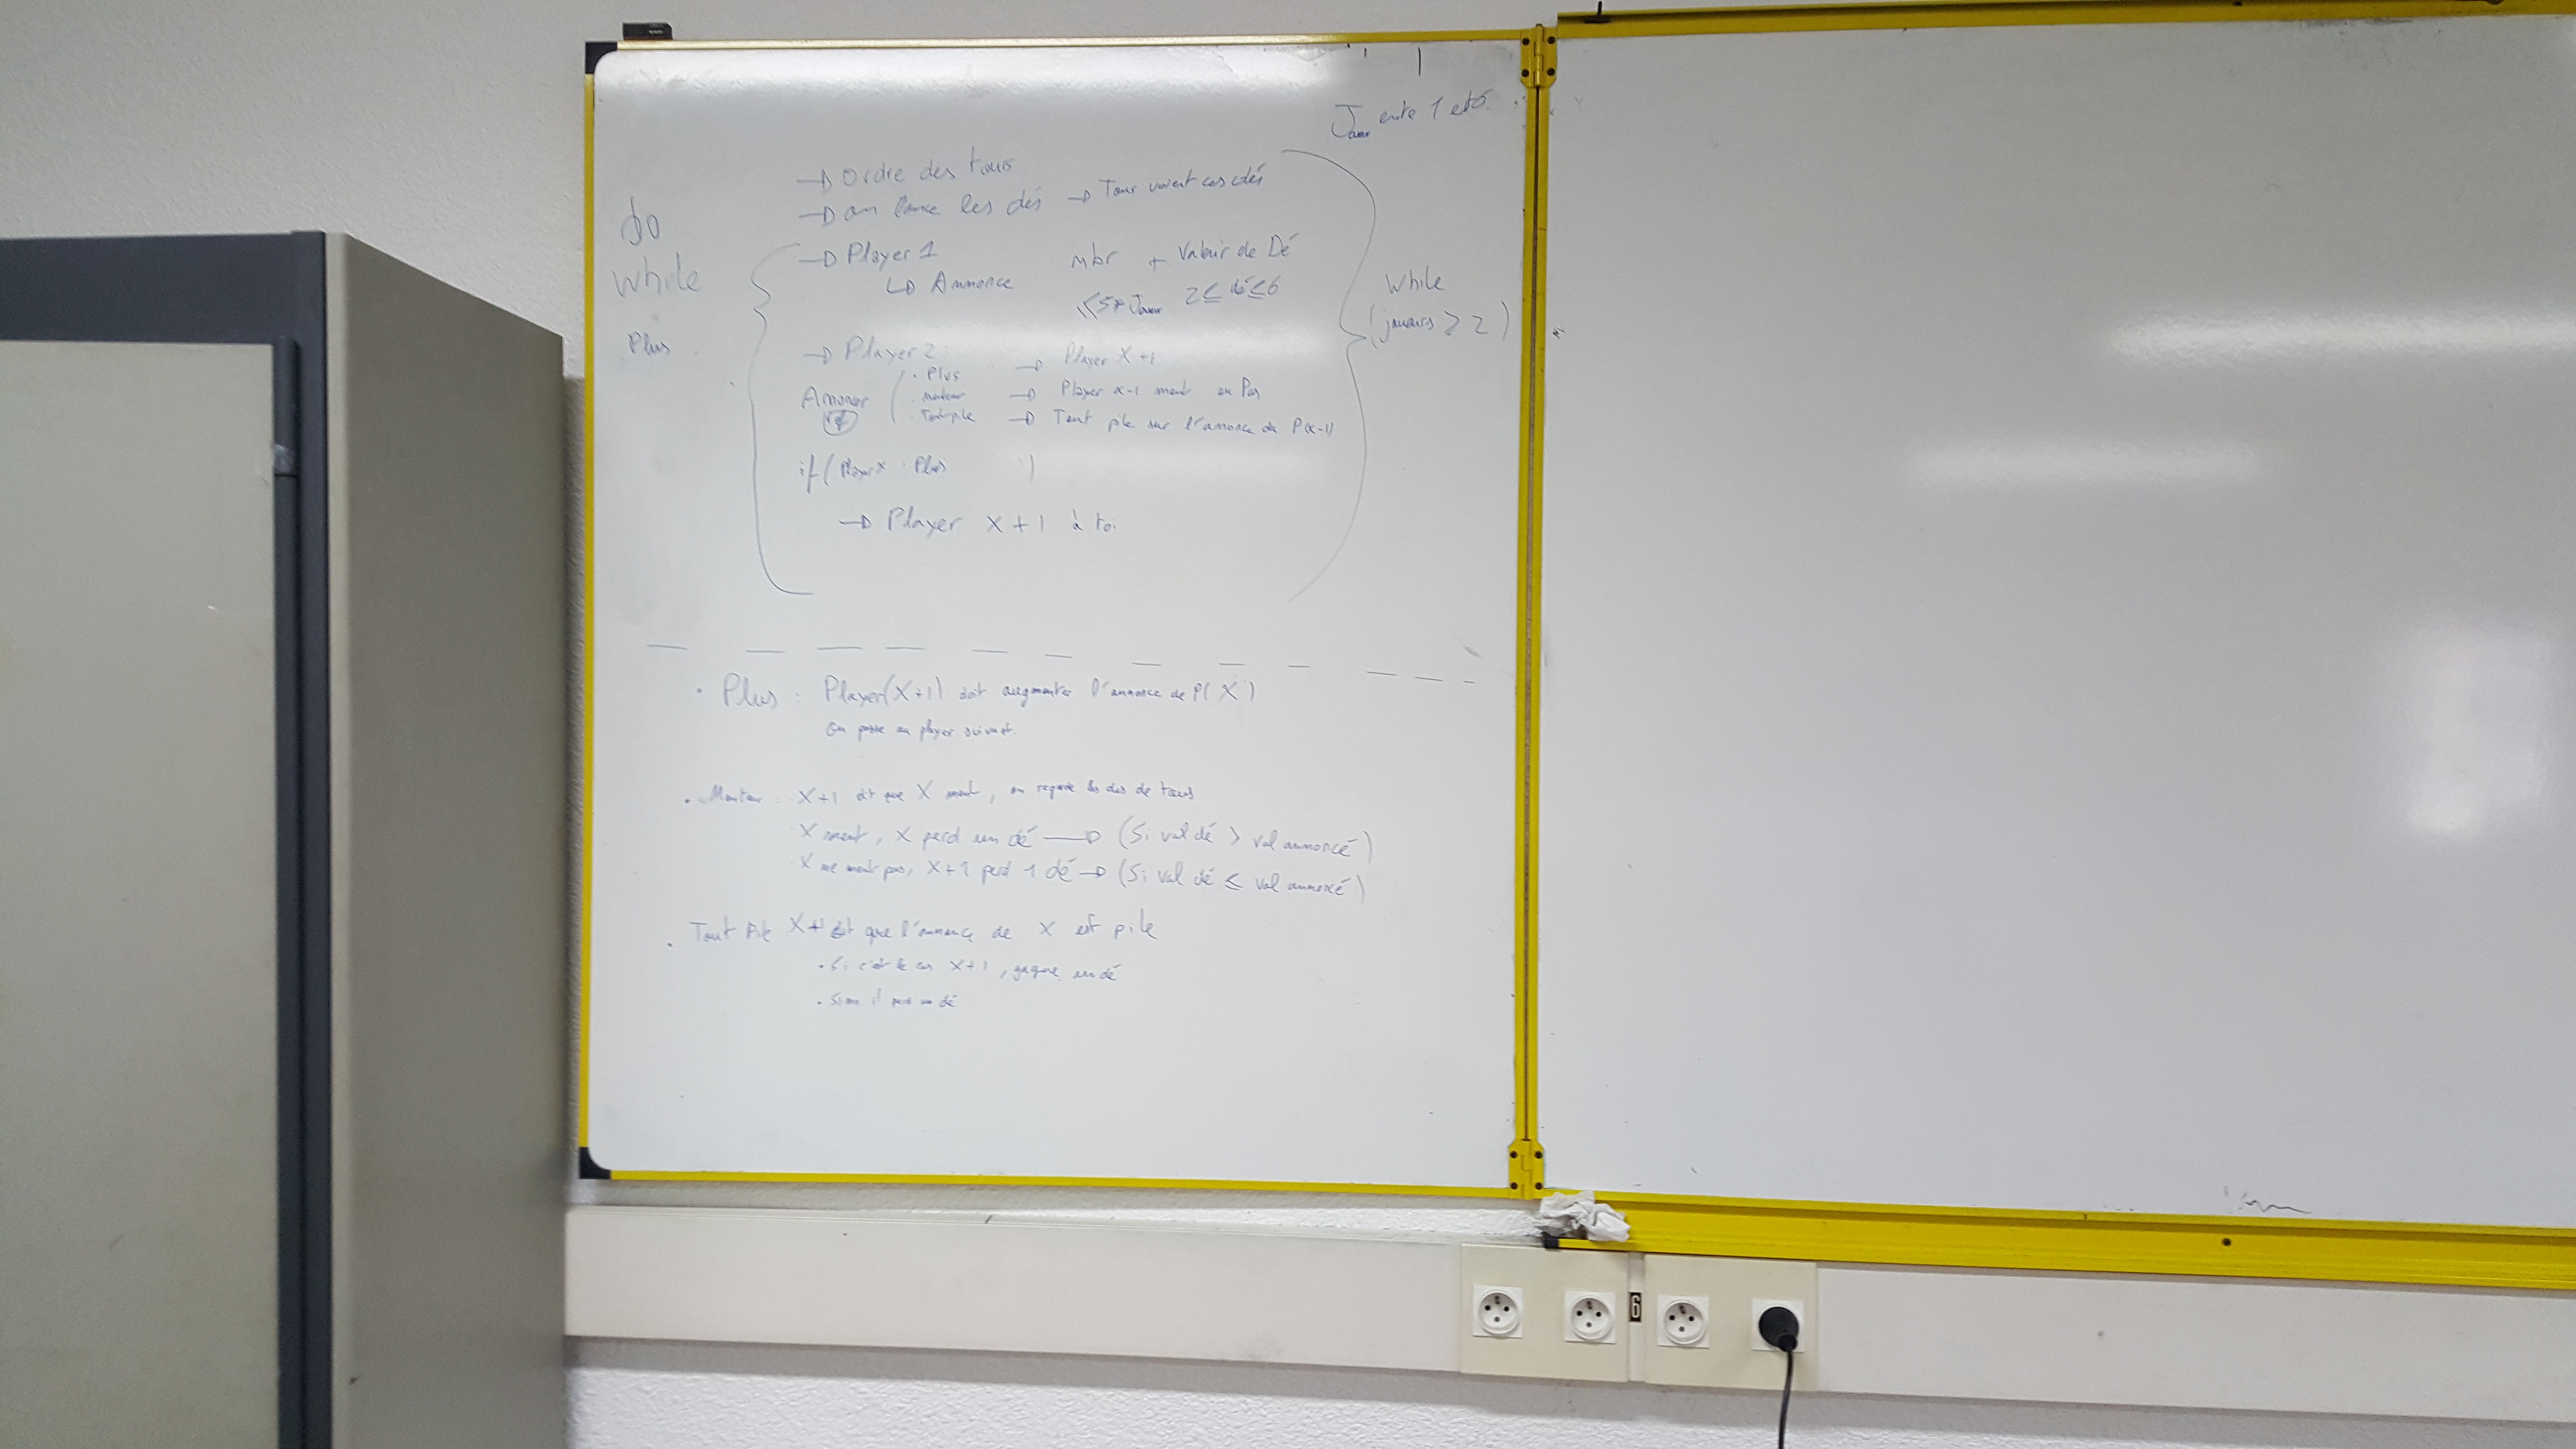 Joueur entre 1 et 6.
→ Ordre des tours
→ on lance les dés → Tous voient ces dés
do
while
Plus
→ Player 1
↳ Annonce
mbr + Valeur de Dé
<5* Joueur 2 ≤ dé ≤ 6
while
(joueurs ≥ 2)
→ Player 2 :
Annoncer
• Plus → Player X+1
• menteur → Player x-1 ment ou Pas
• Tout pile → Tout pile sur l'annonce du P(x-1)
if ( Player x : Plus )
→ Player x+1 à toi
• Plus : Player(X+1) doit augmenter l'annonce de P( X )
On passe au player suivant.
• Menteur : X+1 dit que X ment, on regarde les des de tous
X ment, X perd un dé → (Si val dé > val annoncé)
X ne ment pas, X+1 perd 1 dé → (Si val dé ≤ val annoncé)
• Tout Pile X+1 dit que l'annonce de X est pile
• Si c'est le cas X+1, gagne un dé
• Sinon il perd un dé
6